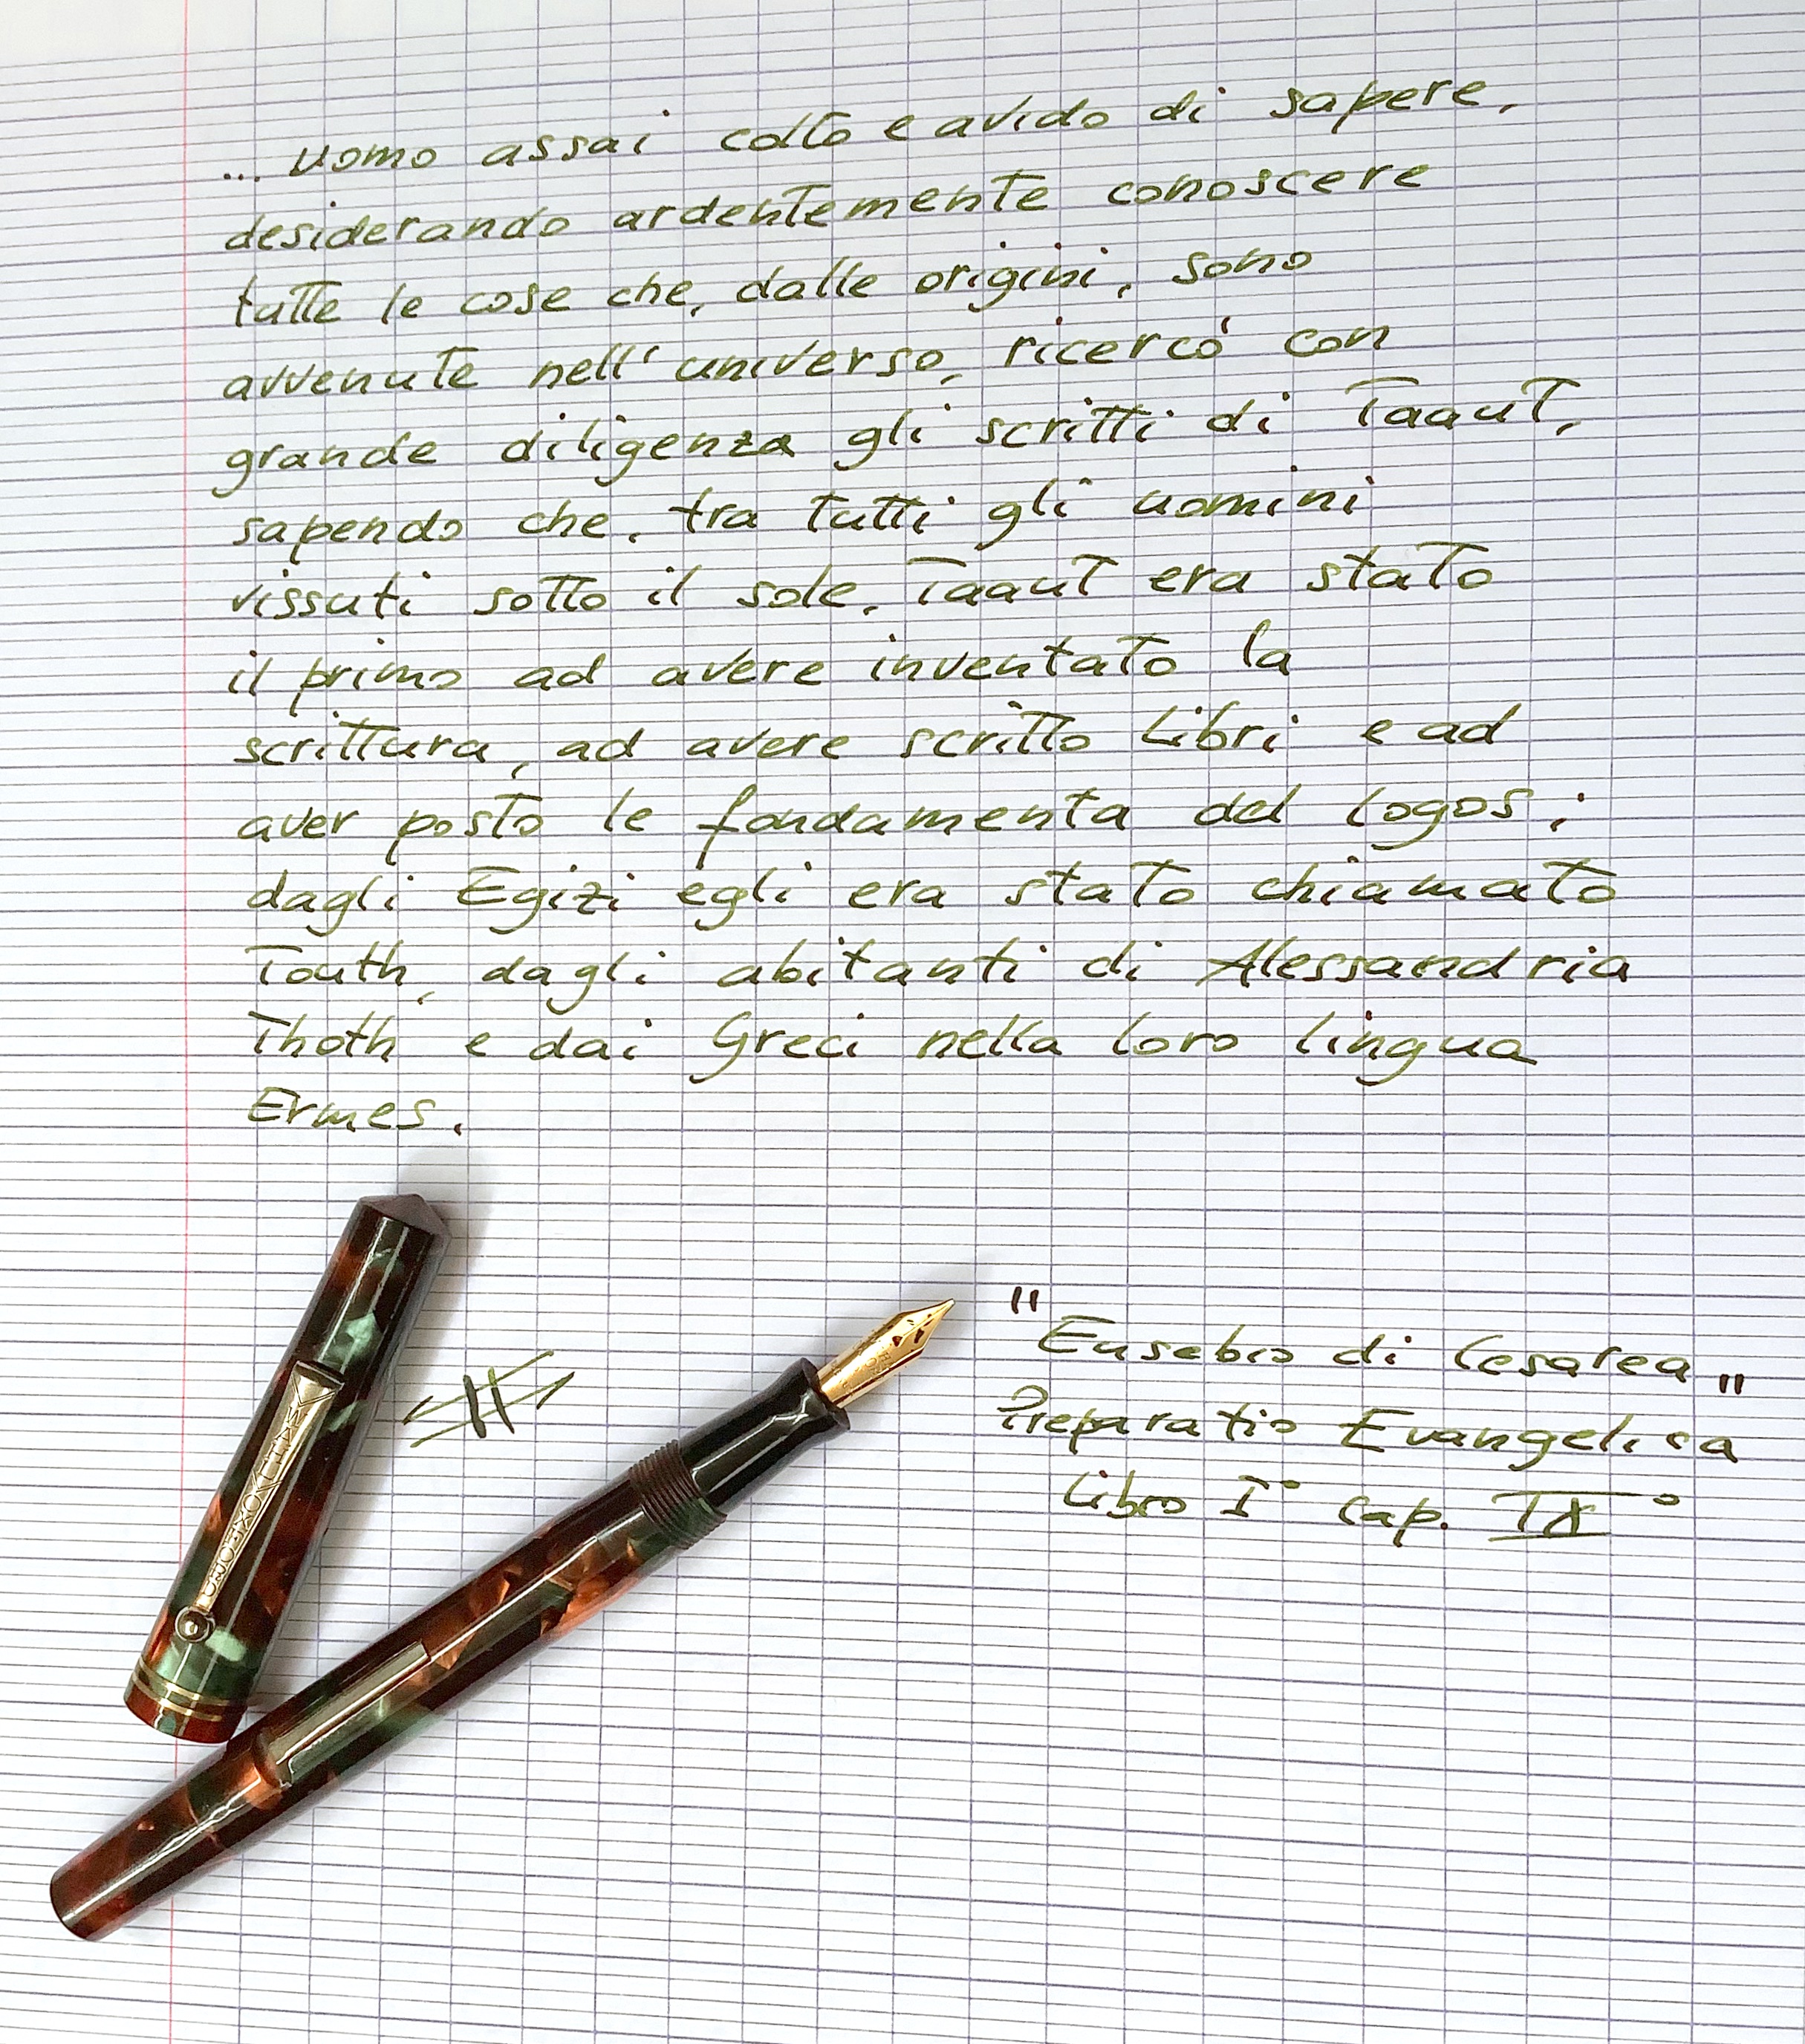 ... uomo assai colto e avido di sapere,
desiderando ardentemente conoscere
tutte le cose che, dalle origini, sono
avvenute nell'universo, ricercò con
grande diligenza gli scritti di Taaut,
sapendo che, tra tutti gli uomini
vissuti sotto il sole, Taaut era stato
il primo ad avere inventato la
scrittura, ad avere scritto Libri e ad
aver posto le fondamenta del logos;
dagli Egizi egli era stato chiamato
Touth, dagli abitanti di Alessandria
Thoth e dai Greci nella loro lingua
Ermes.
"Eusebio di Cesarea"
Preparatio Evangelica
Libro I° Cap. IX°